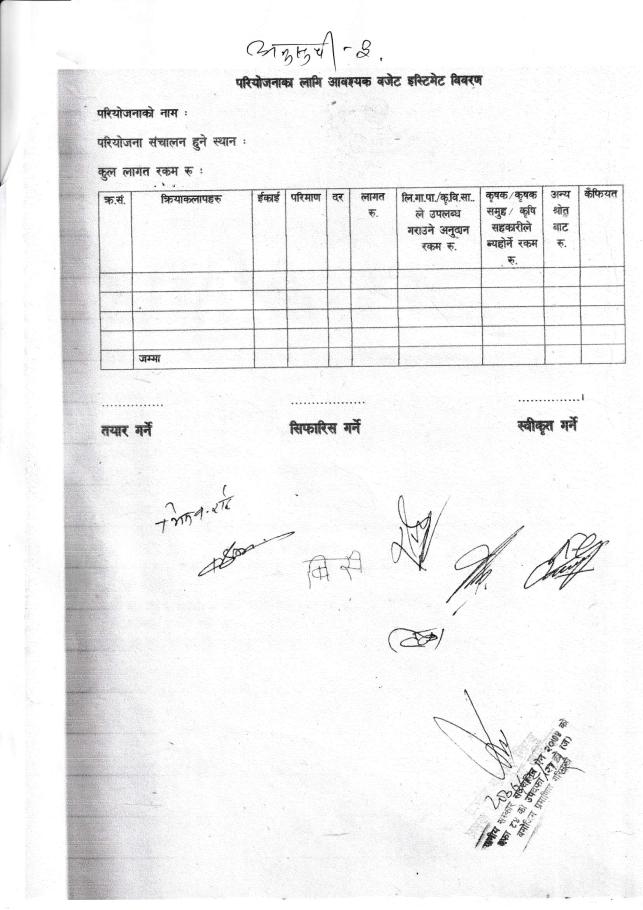 अनुसूची - ३.
परियोजनाका लागि आवश्यक बजेट इस्टिमेट विवरण
परियोजनाको नाम :
परियोजना संचालन हुने स्थान :
कुल लागत रकम रु :
क्र.सं. क्रियाकलापहरु ईकाई परिमाण दर लागत रु. लि.गा.पा./कृ.वि.सा.. ले उपलब्ध गराउने अनुदान रकम रु. कृषक/कृषक समुह/ कृषि सहकारीले ब्यहोर्ने रकम रु. अन्य श्रोत बाट रु. कैफियत
जम्मा
तयार गर्ने सिफारिस गर्ने स्वीकृत गर्ने